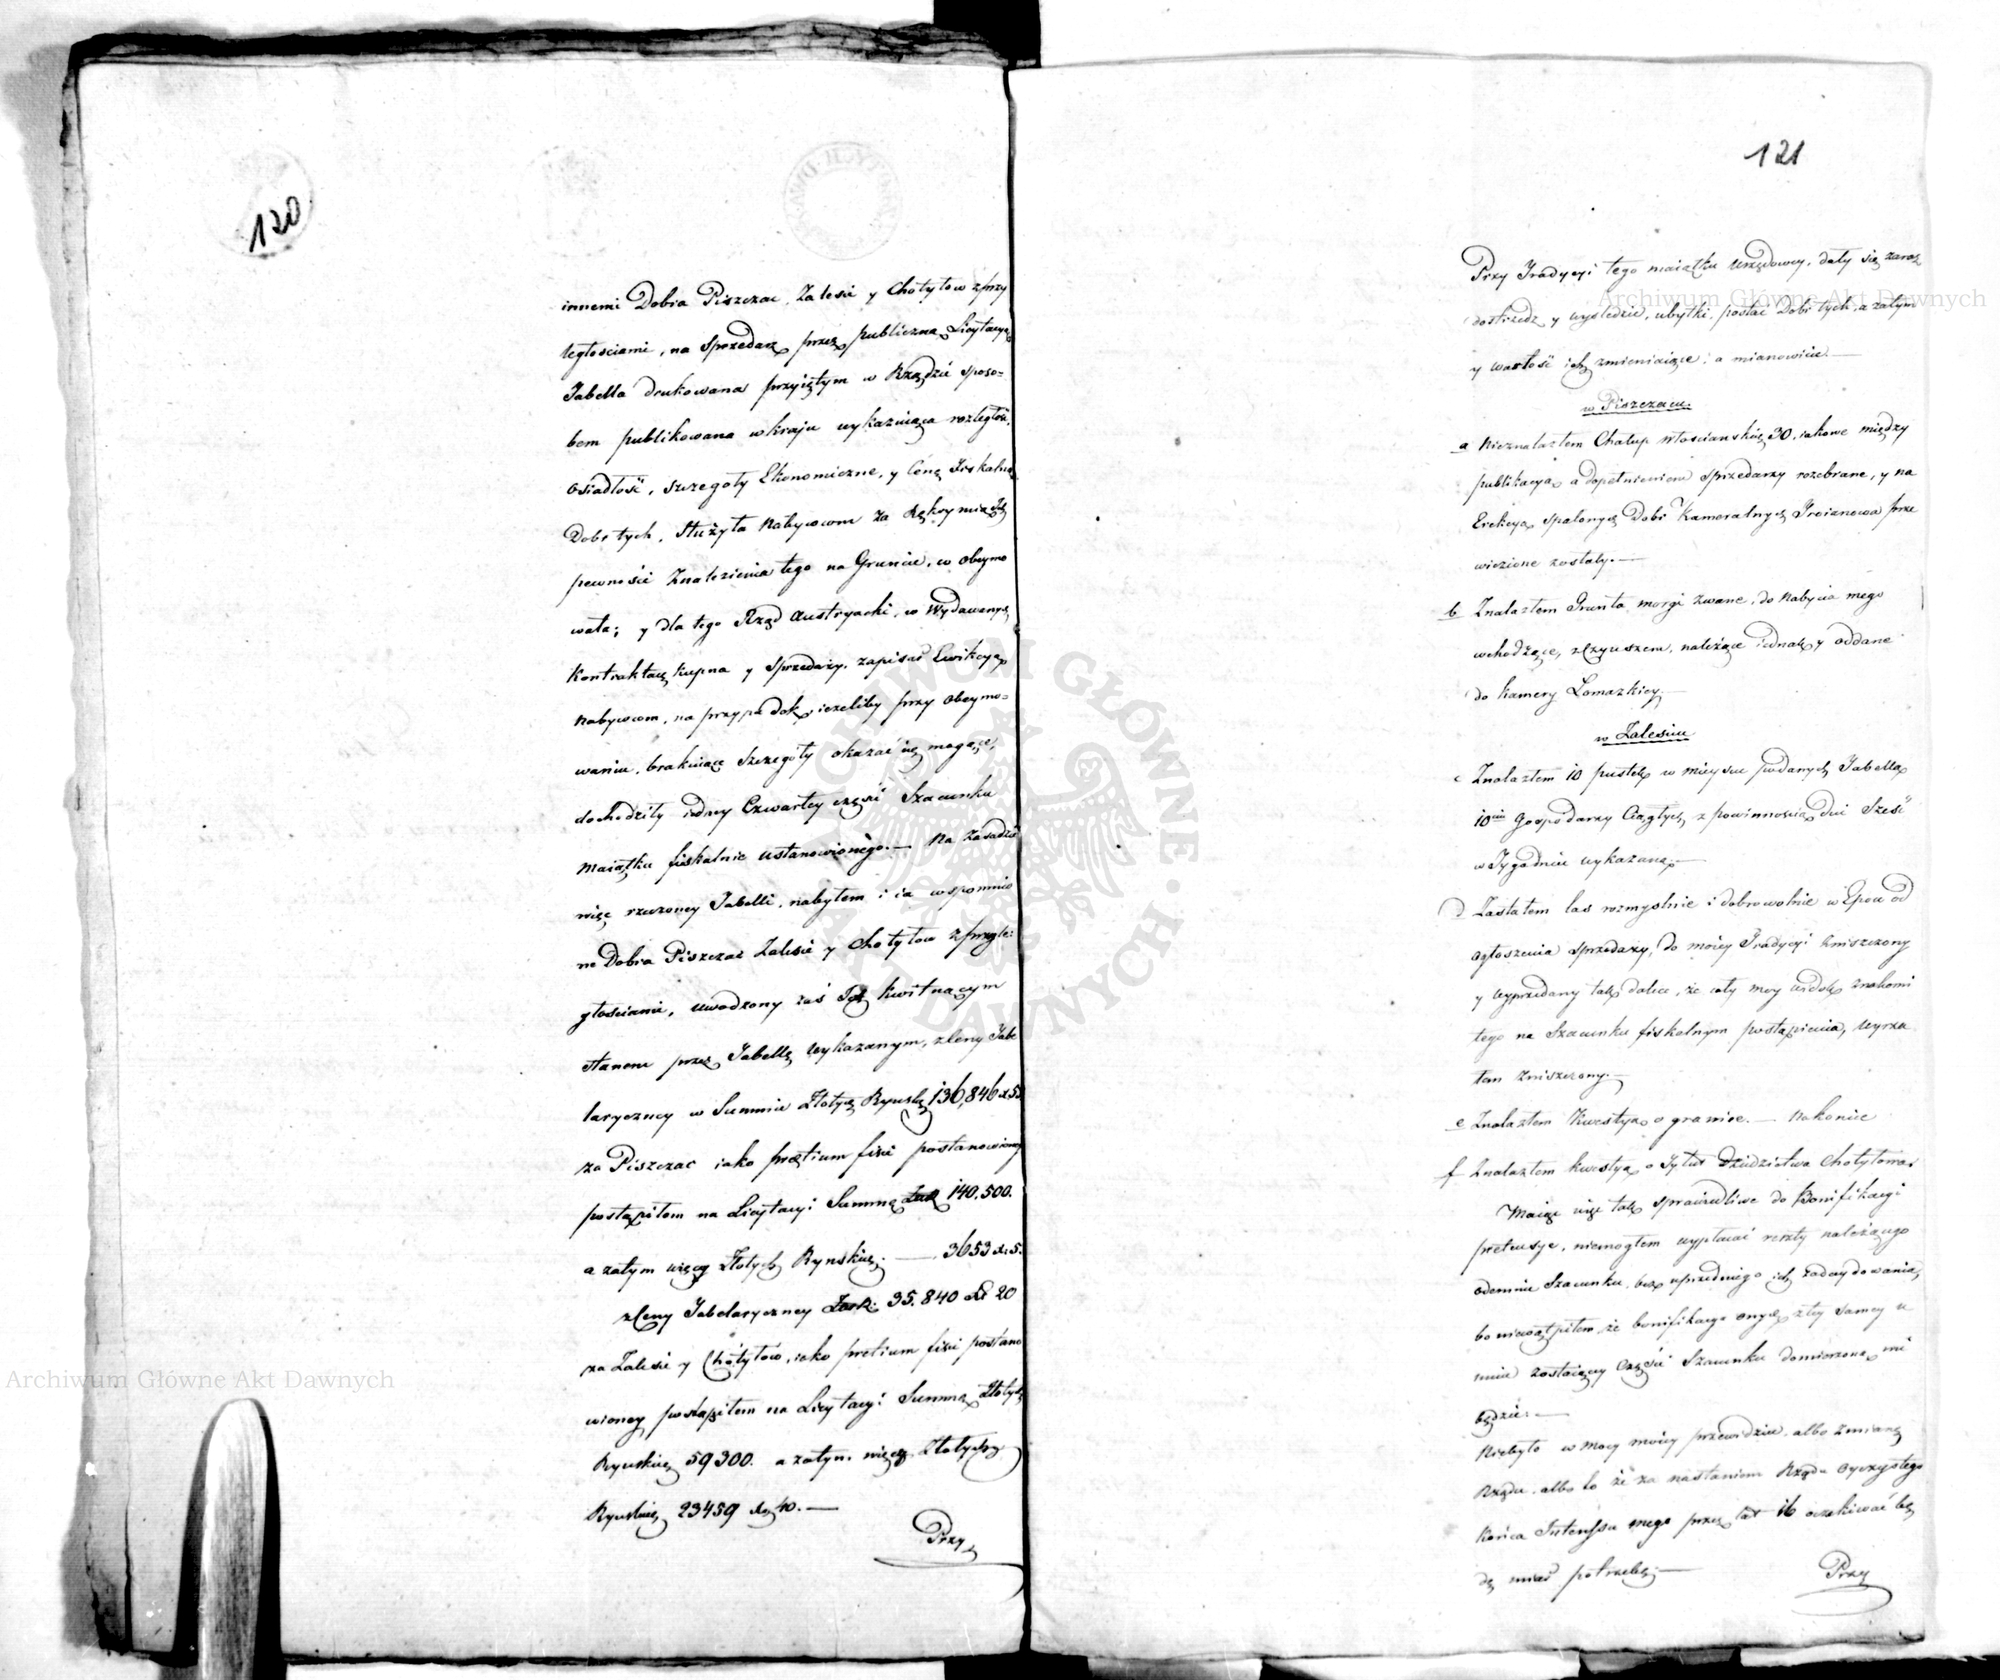 120
innemi Dobra Piszczac, Zalesie y Chotyłow z przy
ległosciami, na Sprzedarz przez publiczną Licytacyą
Tabella drukowana przyiętym w Rządzie sposo=
bem publikowana w kraju wykazuiąca rozległość,
Osiadłość, szczegoły Ekonomiczne, y Cenę Fiskalną
Dobr tych, służyła Nabywcom za Rękoymią Jch
pewności Znalezienia tego na Gruncie, w obeymo
wała; y dla tego Rząd Austryacki, w Wydawanych
Kontraktach kupna y Sprzedaży, zapisał Ewikcyą
Nabywcom, na przypadek, ieżeliby przy obeymo=
waniu, brakuiące Szczegoły okazać się mogące,
dochodziły iedney Czwartey części Szacunku
Maiątku fiskalnie ustanowionego. — Na zasadzie
więc rzeczoney Tabelli, nabyłem i ia wspomnio
ne Dobra Piszczac Zalesie y Chotyłow z przyle:
głościami, uwodzony zaś Jch kwitnącym
stanem przez Tabellę wykazanym, z Ceny Tabe
laryczney w Summie Złotych Ryńskich 136,846 x 55
za Piszczac iako prætium fisci postanowioney
postąpiłem na Licytacyi Summę 140.500.
a zatym więcey Złotych Rynskich — 3653 x. 5.
z Ceny Tabelaryczney 35.840 x 20
za Zalesie y Chotyłow, iako pretium fisci postano
wioney postąpiłem na Licytacyi Summę Złotych
Ryńskich 59300. a zatym więcey Złotych
Ryńskich 23459 x 40. —
Przy
121
Przy Tradycyi tego maiątku Urzędowey, dały się zaraz
dostrzedz y wyśledzić, ubytki, postać Dobr tych, a zatym
y wartość ich zmieniaiące; a mianowicie —
w Piszczacu.
a Nieznalazłem Chałup Włosciańskich 30, iakowe między
publikacyą a dopełnieniem sprzedarzy rozebrane, y na
Erekcyą spalonych Dobr Kameralnych Troianowa prze
wiezione zostały. —
b Znalazłem Grunta morgi zwane, do Nabycia mego
wchodzące, z Czynszem, należące iednak y oddane
do Kamery Łomazkiey —
w Zalesiu
c Znalazłem 10 pustek w mieyscu podanych Tabellą
10ciu Gospodarzy Ciągłych z powinnością Dni Sześć
w Tygodniu wykazaną —
d Zastałem las rozmyslnie i dobrowolnie w Epoce od
ogłoszenia sprzedaży, do moiey Tradycyi zniszczony
y wyprzedany tak dalece, że cały moy widok znakomi
tego na Szacunku fiskalnym postąpienia,
zniszczony. —
e Znalazłem Kwestyą o granice. — Nakoniec
f Znalazłem kwestyą o Tytuł Dziedzictwa Chotyłowa.
Maiąc więc tak sprawiedliwe do Bonifikacyi
pretensye, niemogłem wypłacać reszty należącego
odemnie Szacunku, bez uprzedniego ich zadecydowania,
bo niewątpiłem, że bonifikacya onych, z tey samey u
mnie zostaiącey Części Szacunku domierzoną mi
będzie. —
Niebyło w mocy moiey przewidzieć, albo zmianę
Rządu, albo to że za nastaniem Rządu oyczystego
Końca Interessu mego przez lat 16 oczekiwać bę
dę miał potrzebę; —
Przy